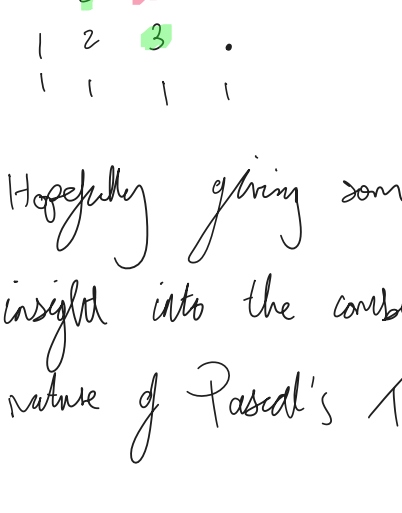 1 2 3 .
1 1 1 1
Hopefully giving som
insight into the comb
nature of Pascal's T